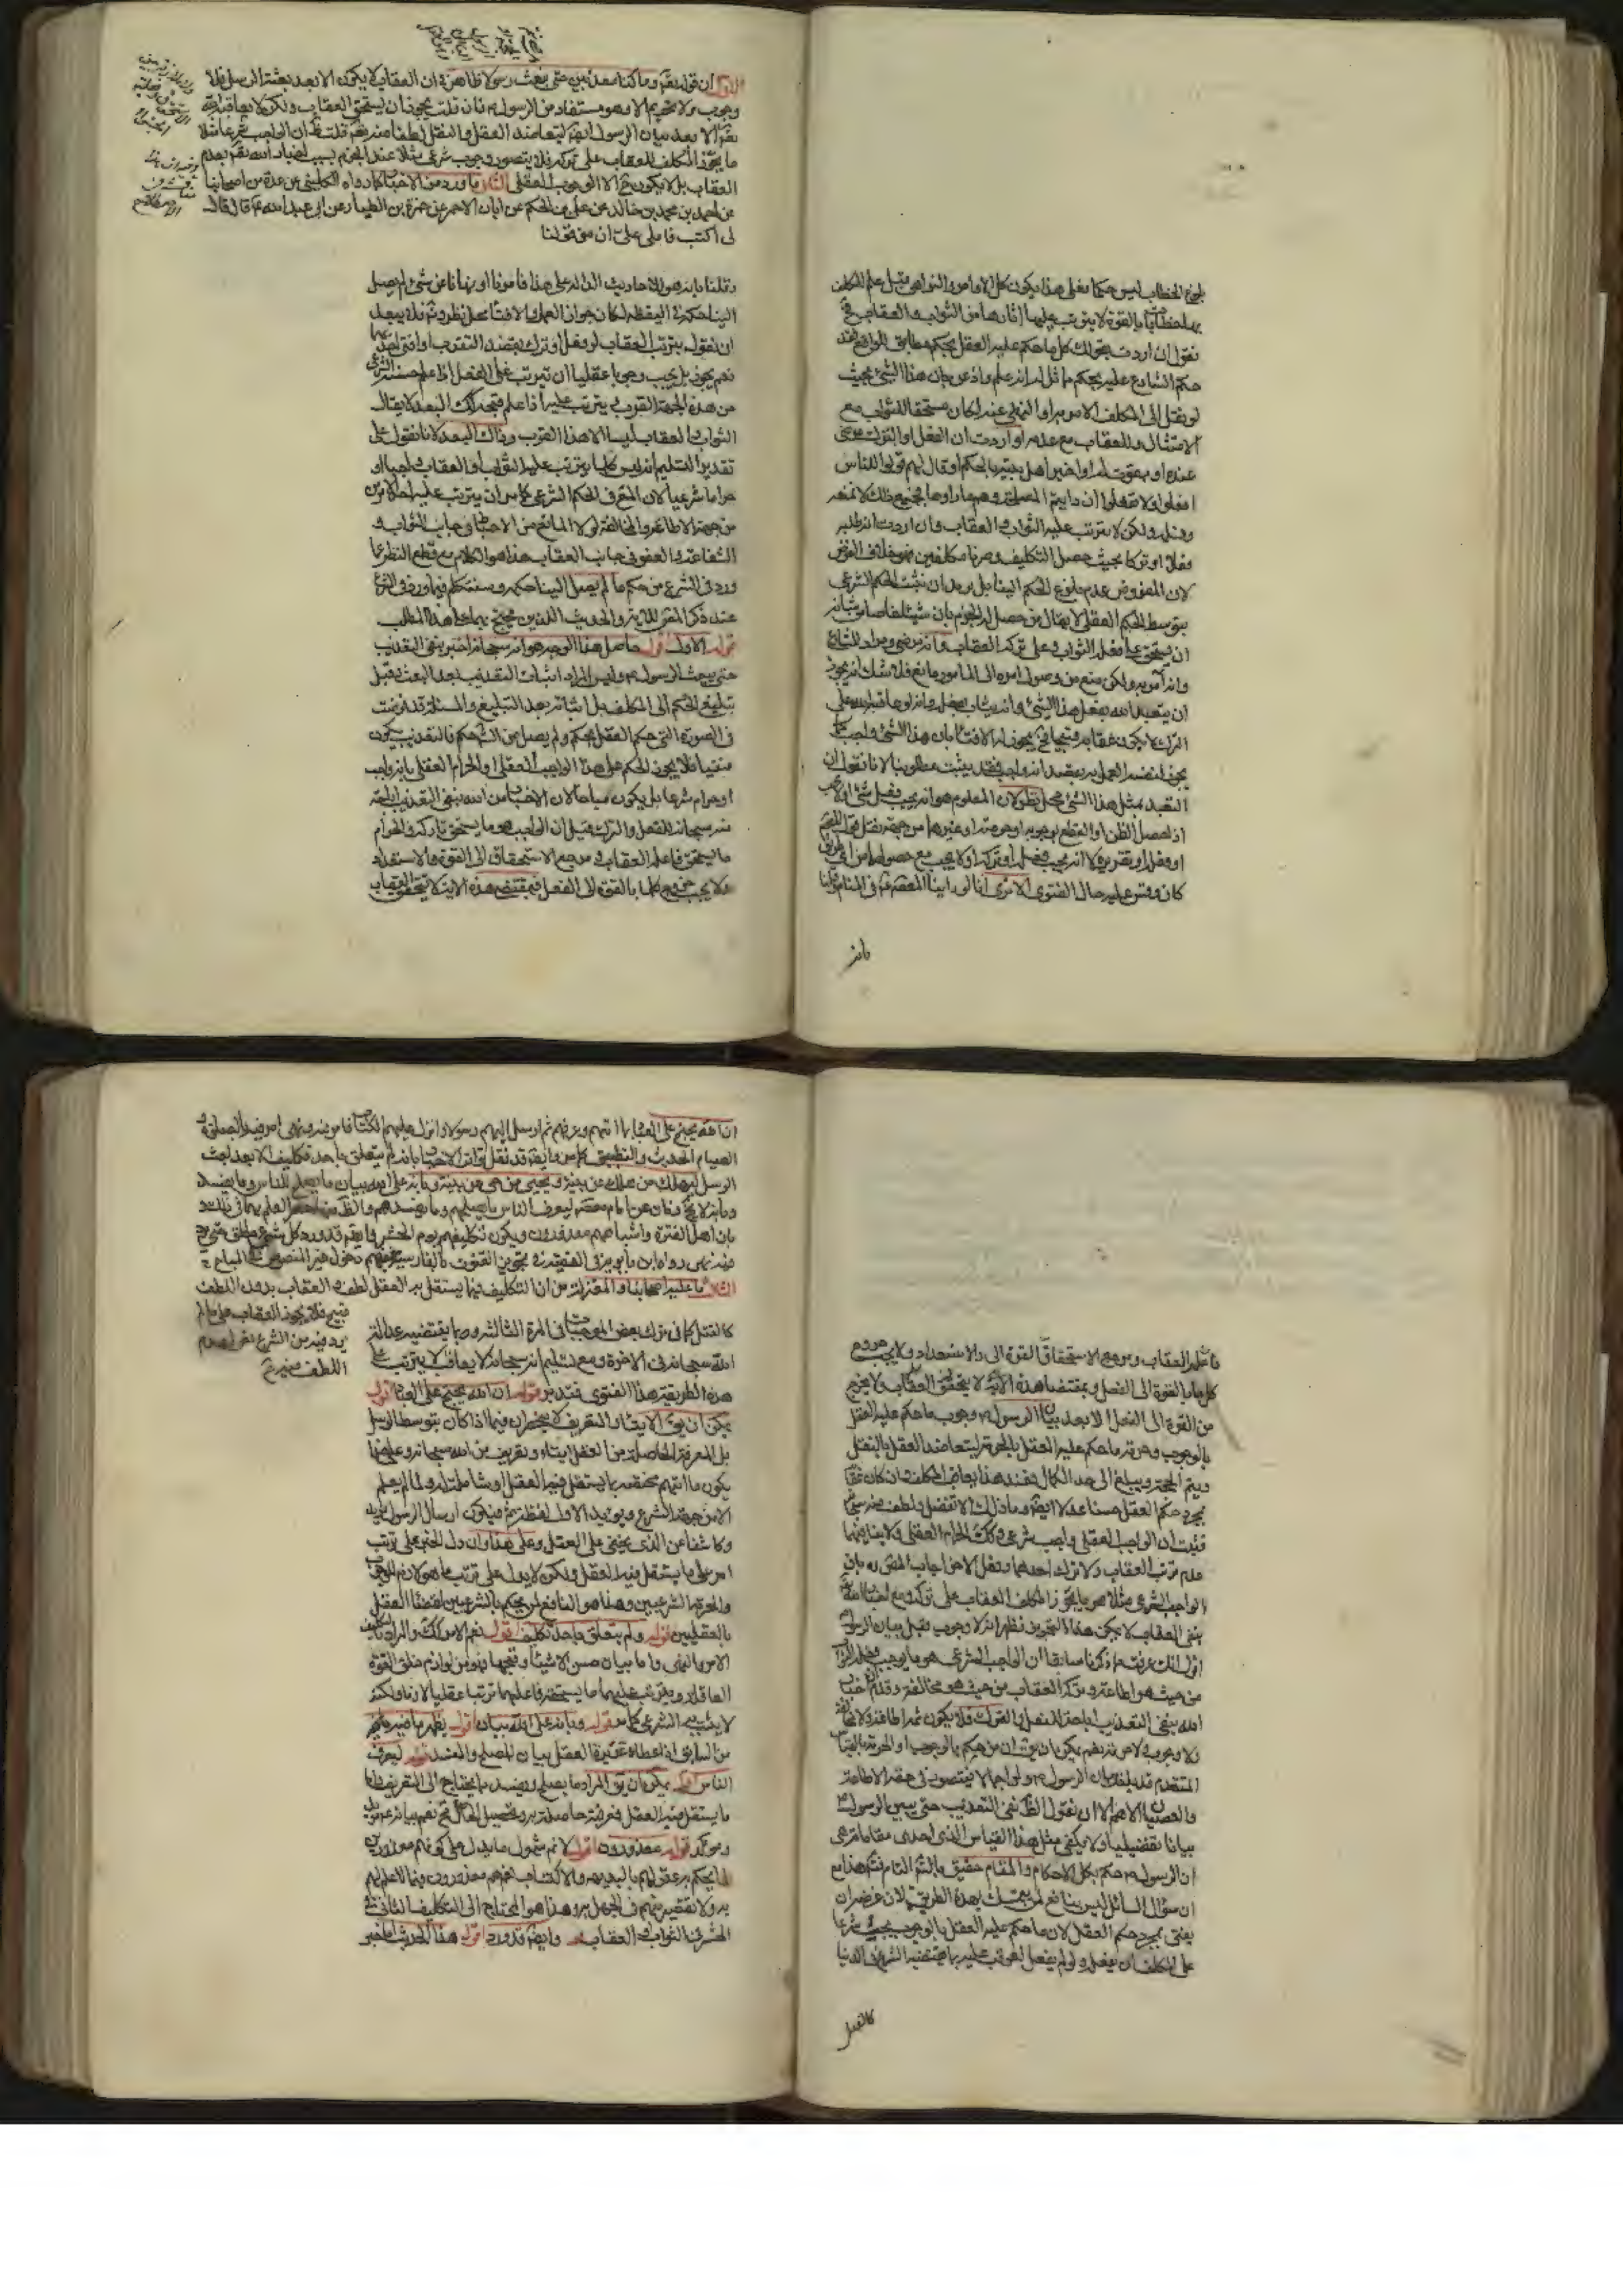 بلوغ الخطاب ليس حكما فعلى هذا يكون كل الاوامر والنواهى قبل علم المكلف
بها خطابا بالقوة لا يترتب عليها اثارها من الثواب والعقاب فح
نقول ان اردت بقولك كل ما حكم عليه العقل بحكم مطابق للواقع فقد
حكم الشارع عليه بحكم مماثل له انه علم واذعن بان هذا الشئ بحيث
لو نقل الى المكلف الامر به او النهى عنه لكان مستحقا للثواب مع
الامتثال وللعقاب مع عدمه او اردت ان الفعل او الترك مرضى
عنده او ممقوت له او اخبر اهل بيته بالحكم او قال لهم قولوا للناس
افعلوا او لا تفعلوا ان رايتم المصلحة وهم ما راوها فجميع ذلك لا نمنعه
ونقبله ولكن لا يترتب عليه الثواب والعقاب وان اردت انه طلب
فعلا او تركا بحيث حصل التكليف وصرنا مكلفين فهو خلاف الفرض
لان المفروض عدم بلوغ الحكم الينا بل يريد ان نثبت الحكم الشرعى
بتوسط الحكم العقلى لا يقال من حصل له الجزم بان شيئا خاصا من شانه
ان يستحق على فعله الثواب وعلى تركه العقاب وانه مرضى ومراد للشارع
وانه امر به ولكن منع من وصول امره الى المامور مانع فلا شك انه يجوز
ان يتعبد الله بفعل هذا الشئ وانه يثاب بفعله وانه لو عاقبه الله على
الترك لا يكون عقابه قبيحا فح يجوز له الافتاء بان هذا الشئ واجب كما
يجوز لنفسه العمل به بقصد انه واجب فقد يثبت مطلوبنا لانا نقول ان
التعبد بمثل هذا الشئ محل نظر لان المعلوم هو انه يجب فعل شئ او تركه
اذا حصل الظن او القطع بوجوبه او حرمته او غيرهما من جهة نقل قول المعصوم
او فعله او تقريره لا انه يجب فعله او تركه او لا يجب مع حصولهما من اى طريق
كان وقس عليه حال الفتوى الا ترى انا لو راينا المعصوم ع في المنام
بانه
الاول ان قوله تعم وما كنا معذبين حتى نبعث رسولا ظاهر في ان العقاب لا يكون الا بعد بعثة الرسل فلا
وجوب ولا تحريم الا وهو مستفاد من الرسول ص فان قلت يجوز ان يستحق العقاب ولكن لا يعاقبه الله
تعم الا بعد بيان الرسول ايضا ليتعاضد العقل والنقل لطفا منه تعم قلت ظ ان الواجب شرعا مثلا
ما يجوز المكلف العقاب على تركه فلا يتصور وجوب شرعى مثلا عند الجزم بسبب اخبار الله تعم بعدم
العقاب بل لا يكون ح الا الوجوب العقلى الثانى ما ورد من الاخبار كما رواه الكلينى عن عدة من اصحابنا
عن احمد بن محمد بن خالد عن على بن الحكم عن ابان الاحمر عن حمزة بن الطيار عن ابى عبد الله ع قال قال
لى اكتب فاملى على ان من قولنا
وقلنا بانه هو للاحاديث الدالة على هذا فامرنا او نهانا عن شئ لم يصل
الينا حكمه في اليقظة لكان جواز العمل والافتاء محل نظر وتامل فيبعد
ان نقول بترتب العقاب لو فعل او ترك بقصد التقرب او افتى باحدهما
نعم يجوز بل يجب وجوبا عقليا ان يترتب على الفعل اذا علم حسنه الشرعى
من هذه الجهة القرب و يترتب عليه اذا علم قبحه ذلك البعد لا يقال
الثواب والعقاب ليسا الا هذا القرب وذاك البعد لانا نقول على
تقدير التسليم انه ليس كلما يترتب عليه الثواب او العقاب واجبا او
حراما شرعيا لان المعتبر في الحكم الشرعى كما مر ان يترتب عليه احد الامرين
من جهة الاطاعة والمخالفة لولا المانع من الاحباط في جانب الثواب و
الشفاعة والعفو في جانب العقاب هذا هو الكلام مع قطع النظر عما
ورد في الشرع من حكم ما لم يصل الينا حكمه وسنتكلم فيما ورد في الشرع
عند ذكر المص للاية والحديث اللذين يحتج بهما على هذا المطلب
قوله الاول اقول حاصل هذا الوجه هو انه سبحانه اخبر بنفى التعذيب
حتى يبعث الرسول ص وليس المراد اثبات التعذيب بعد البعث وقبل
تبليغ الحكم الى المكلف بل اثباته بعد التبليغ والمسئلة قد فرضت
في الصورة التى حكم العقل بحكم ولم يصل من الشرع حكم فالتعذيب يكون
منتفيا فلا يجوز الحكم على هذا الواجب العقلى او الحرام العقلى بانه واجب
او حرام شرعا بل يكون مباحا لان الاخبار من الله بنفى التعذيب اباحة
منه سبحانه للفعل والترك فقيل ان الواجب هو ما يستحق تاركه والحرام
ما يستحق فاعله العقاب ومرجع الاستحقاق الى القوة والاستعداد
ولا يجب خروج كلما بالقوة الى الفعل فبمقتضى هذه الاية لا يتحقق العقاب
فاعله العقاب ومرجع الاستحقاق القوة الى والاستعداد ولا يجب خروج
كل ما بالقوة الى الفعل وبمقتضى هذه الاية لا يتحقق العقاب ولا يخرج
من القوة الى الفعل الا بعد بيان الرسول ص وجوب ما حكم عليه العقل
بالوجوب وحرمة ما حكم عليه العقل بالحرمة ليتعاضد العقل بالنقل
ويتم الحجة ويبلغ الى حد الكمال فعند هذا يعاقب المكلف وان كان عقا
بمجرد حكم العقل حسنا عدلا ايضا وما ذلك الا تفضل ولطف منه سبحانه
فثبت ان الواجب العقلى واجب شرعى وكذلك الحرام العقلى ولا ينافيهما
عدم ترتب العقاب ولا ترك احدهما وفعل الاخر اجاب المص ره بان
الواجب الشرعى مثلا هو ما يجوز المكلف العقاب على تركه ومع اخبار الله
بنفى العقاب لا يمكن هذا التجويز فظهر انه لا وجوب قبل بيان الرسول
اقول انك عرفت ما ذكرنا سابقا ان الواجب الشرعى هو ما يوجب فعله الثواب
من حيث هو اطاعة وتركه العقاب من حيث هو مخالفة وقد تم اخبار
الله بنفى التعذيب اباحة للفعل والترك فلا يكون ثمة اطاعة ولا مخالفة
ولا وجوب ولا حرمة نعم يمكن ان يق ان من حكم بالوجوب او الحرمة بالقياس
المتقدم قد بلغه بيان الرسول ص ولو اجمالا فيتصور في حقه الاطاعة
والعصيان اللهم الا ان نقول الظ نفى التعذيب حتى يبين الرسول ص
بيانا تفصيليا ولا يكفى مثل هذا القياس الذى احدى مقدماته هى
ان الرسول ص حكم بكل الاحكام والمقام حقيق بالتامل التام فتم هذا مع
ان سؤال السائل ليس بنافع لمن يتمسك بهذه الطريقة لان غرضه ان
يفتى بمجرد حكم العقل لان ما حكم عليه العقل بالوجوب يجب شرعا
على المكلف ان يفعله ولو لم يفعل لعوقب عليه بما يقتضيه الشرع في الدنيا
كالقتل
ان الله يحتج على العباد بما اتاهم وعرفهم ثم ارسل اليهم رسولا وانزل عليهم الكتاب فامر فيه ونهى امر فيه بالصلوة و
الصيام الحديث والتطبيق كما مر وايضا قد نقل تواتر الاخبار بانه لم يتعلق باحد تكليف الا بعد بعث
الرسل ليهلك من هلك عن بينة ويحيى من حى عن بينة وبانه على الله بيان ما يصلح للناس وما يفسد
وبانه لا يخلو زمان عن امام معصوم ليعرف الناس ما يصلحهم وما يفسدهم والظ منه حصر العلم بهما في ذلك و
بان اهل الفترة واشباههم معذورون ويكون تكليفهم يوم الحشر وايضا قد ورد كل شئ مطلق حتى يرد
فيه نهى رواه ابن بابويه في الفقيه في تجويز القنوت بالفارسية دخول غير المنصوص في المباح
الثالث ما عليه اصحابنا والمعتزلة من ان التكليف فيما يستقل به العقل لطف والعقاب بدون اللطف
قبيح فلا يجوز العقاب على ما لم
يرد فيه من الشرع نص لعدم
اللطف فيه ح
كالقتل كما في ترك بعض الواجبات في المرة الثالثة وبما يقتضيه عدالة
الله سبحانه في الاخرة ومع تسليم انه سبحانه لا يعاقب لا يترتب على
هذه الطريقة هذا الفتوى فتدبر قوله ان الله يحتج على العباد اقول
يمكن ان يق الايتاء والتعريف لا ينحصران فيما اذا كان بتوسط الرسل
بل المعرفة الحاصلة من العقل ايتاء وتعريف من الله سبحانه وعلى هذا
يكون ما اتاهم مختصة بما يستقل فيه العقل او شاملة له ولما لم يعلم
الا من جهة الشرع ويؤيد الاول لفظة ثم فيكون ارسال الرسول
وكاشفا عن الذى يخفى على العقل وعلى هذا وان دل الخبر على ترتب
امر على ما يستقل فيه العقل ولكن لا يدل على ترتب ما هو لازم للوجوب
والحرمة الشرعيين وهذا هو النافع لمن يحكم بالشرعيين اقتضاء العقل
بالعقليين قوله ولم يتعلق باحد تكليف اقول نعم الامر كذلك والمراد بالتكليف
الامر والنهى واما بيان حسن الاشياء وقبحها فهو من لوازم خلق القوة
العاقلة ويترتب عليهما ما يستحقه فاعلهما ترتبا عقليا لازما ولكنه
لا يثبت به الشرعى كما مر قوله وبانه على الله بيان اقول يظهر ما فيه مما مر
من السابق اذ اعطاء غريزة العقل بيان للمصلح والمفسد قوله ليعرف
الناس اقول يمكن ان يق المراد ما يصلح ويفسد مما يحتاج الى التعريف واما
ما يستقل فيه العقل فمعرفته حاصلة به وتحصيل الحاصل مح نعم بيانه
ومؤكد قوله معذورون اقول لا نم شمول ما يدل على كونهم معذورين
لما يحكم به عقولهم بالبديهة والاكتساب بل هم معذورون فيما لا علم لهم
به ولا تقصير منهم في الجهل به وهذا هو المحتاج الى التكليف الثانى في
الحشر في الثواب والعقاب قوله وايضا قد ورد اقول هذا الحديث الخبر